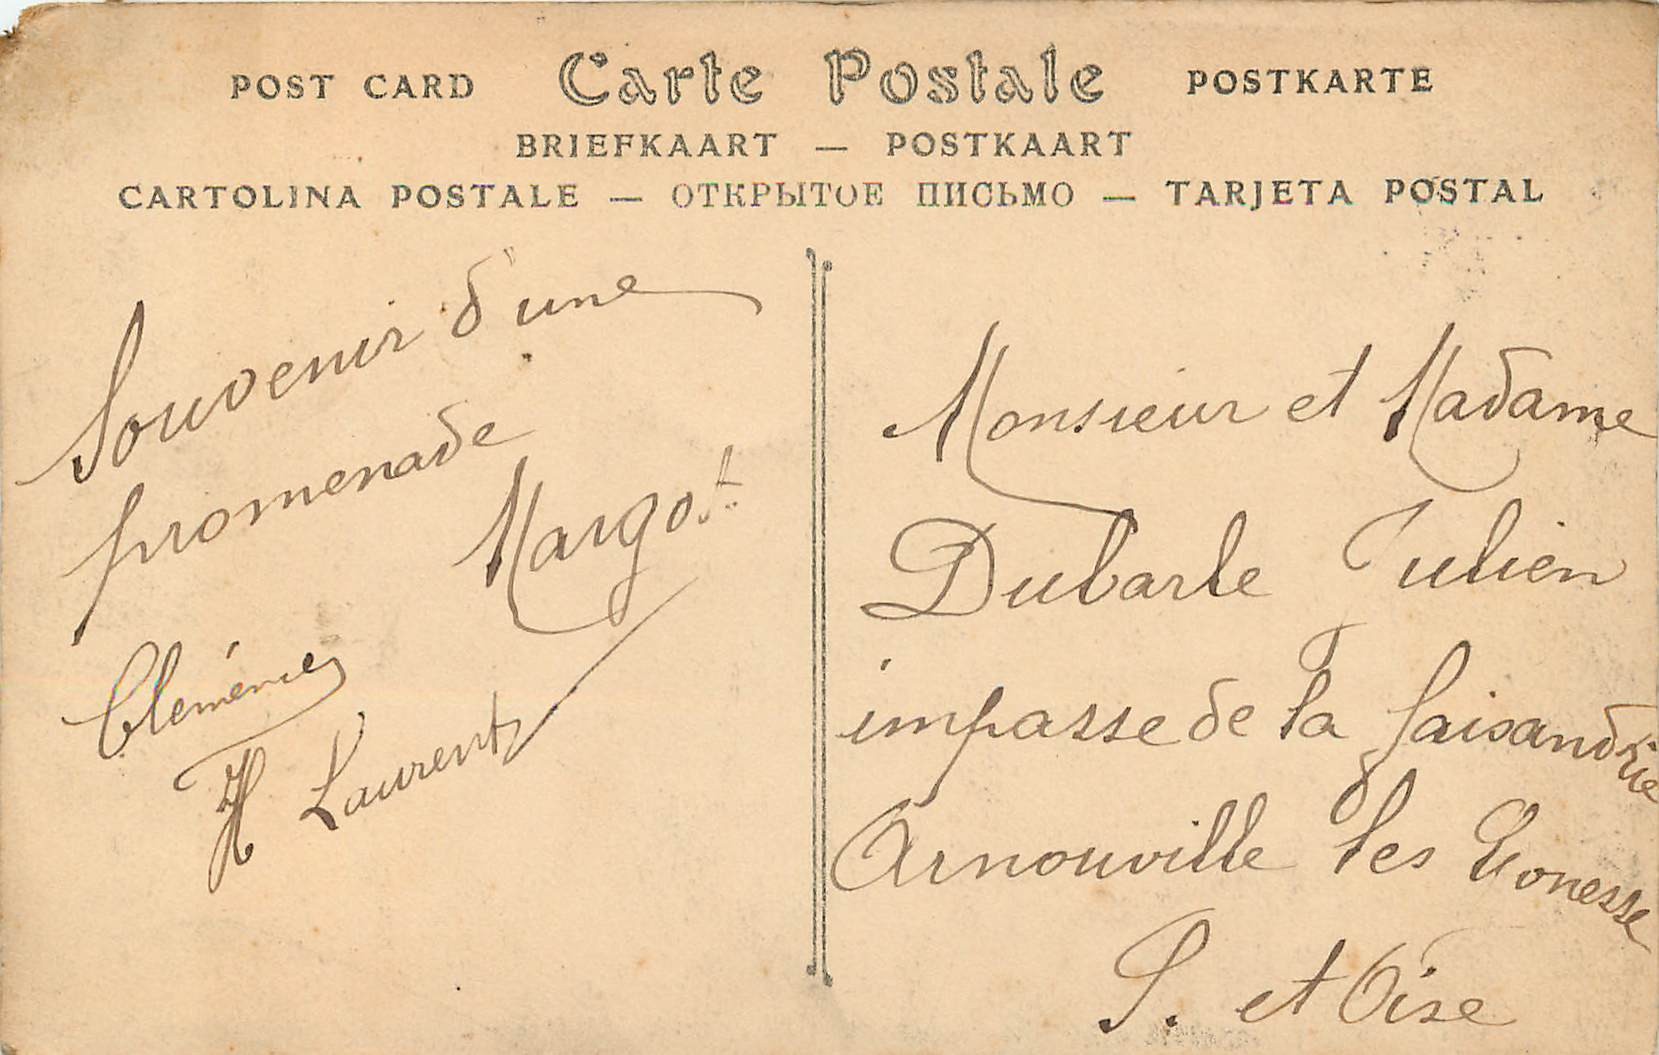 POST CARD Carte Postale POSTKARTE
BRIEFKAART — POSTKAART
CARTOLINA POSTALE — ОТКРЫТОЕ ПИСЬМО — TARJETA POSTAL
Souvenir d'une
promenade
Margot
Clémence
H Laurent
Monsieur et Madame
Dubarle Julien
impasse de la faisandrie
Arnouville les Gonesse
S. et Oise